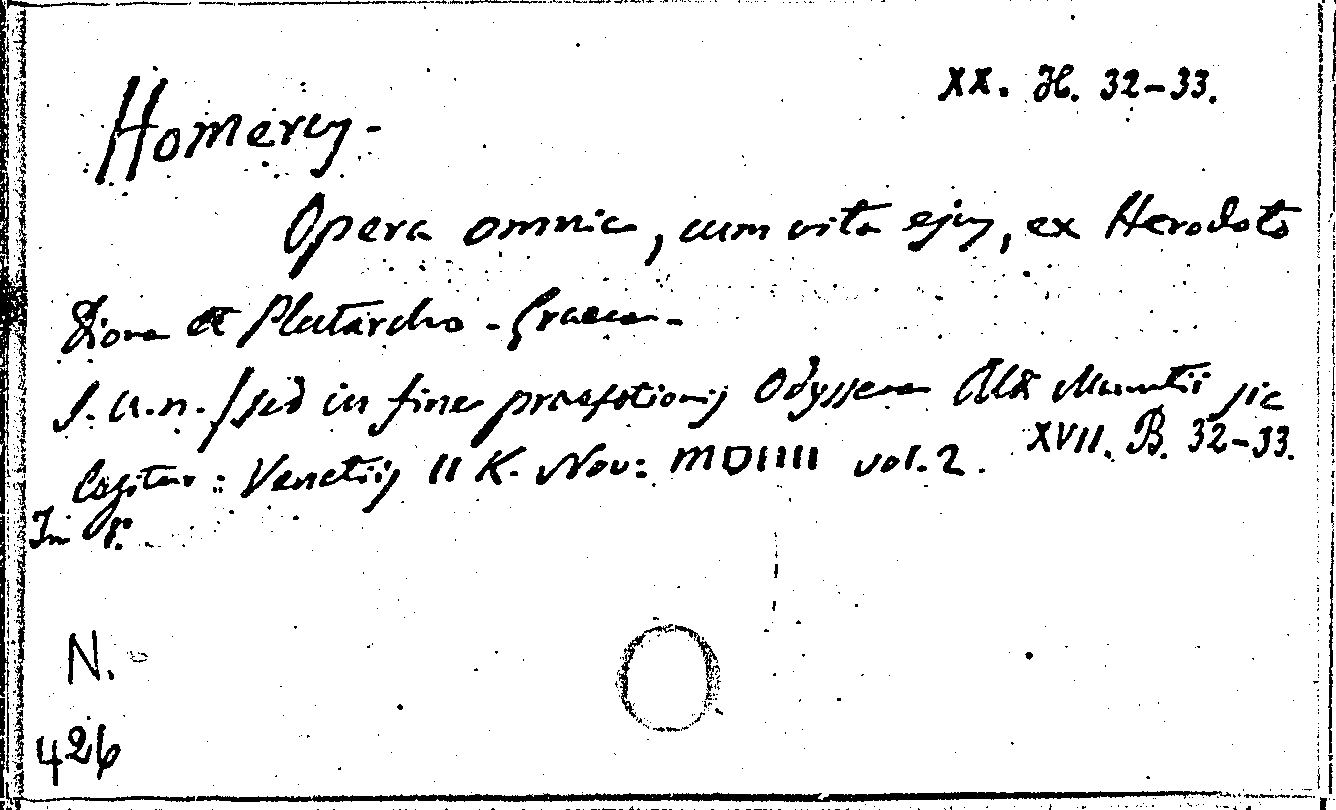 XX. H. 32-33.
Homerus.
Opera omnia, cum vita ejus, ex Herodoto
Dione et Plutarcho. Graece.
S. a. n. /sed in fine praefationis Odysseae Aldi Manutii sic
legitur: Venetiis II K. Nov: MDIIII vol. 2. XVII. B. 32-33.
In 8.
N.
426